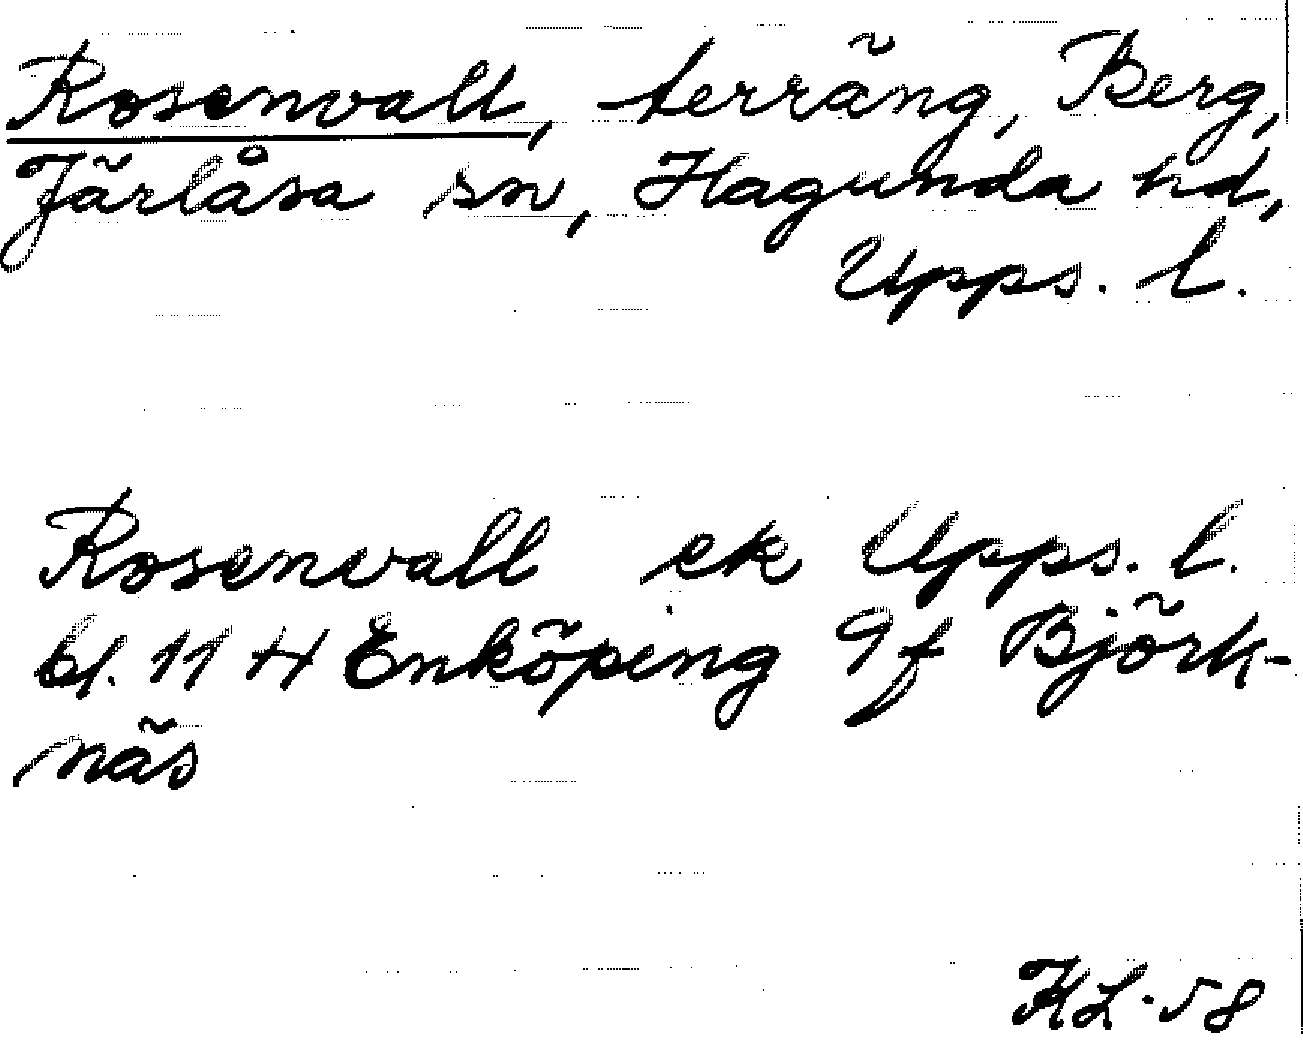 Rosenvall, terräng, Berg,
Järlåsa sn, Hagunda hd,
Upps. l.
Rosenvall ek Upps. l.
bl. 11 H Enköping 9f Björk-
näs
KL-58